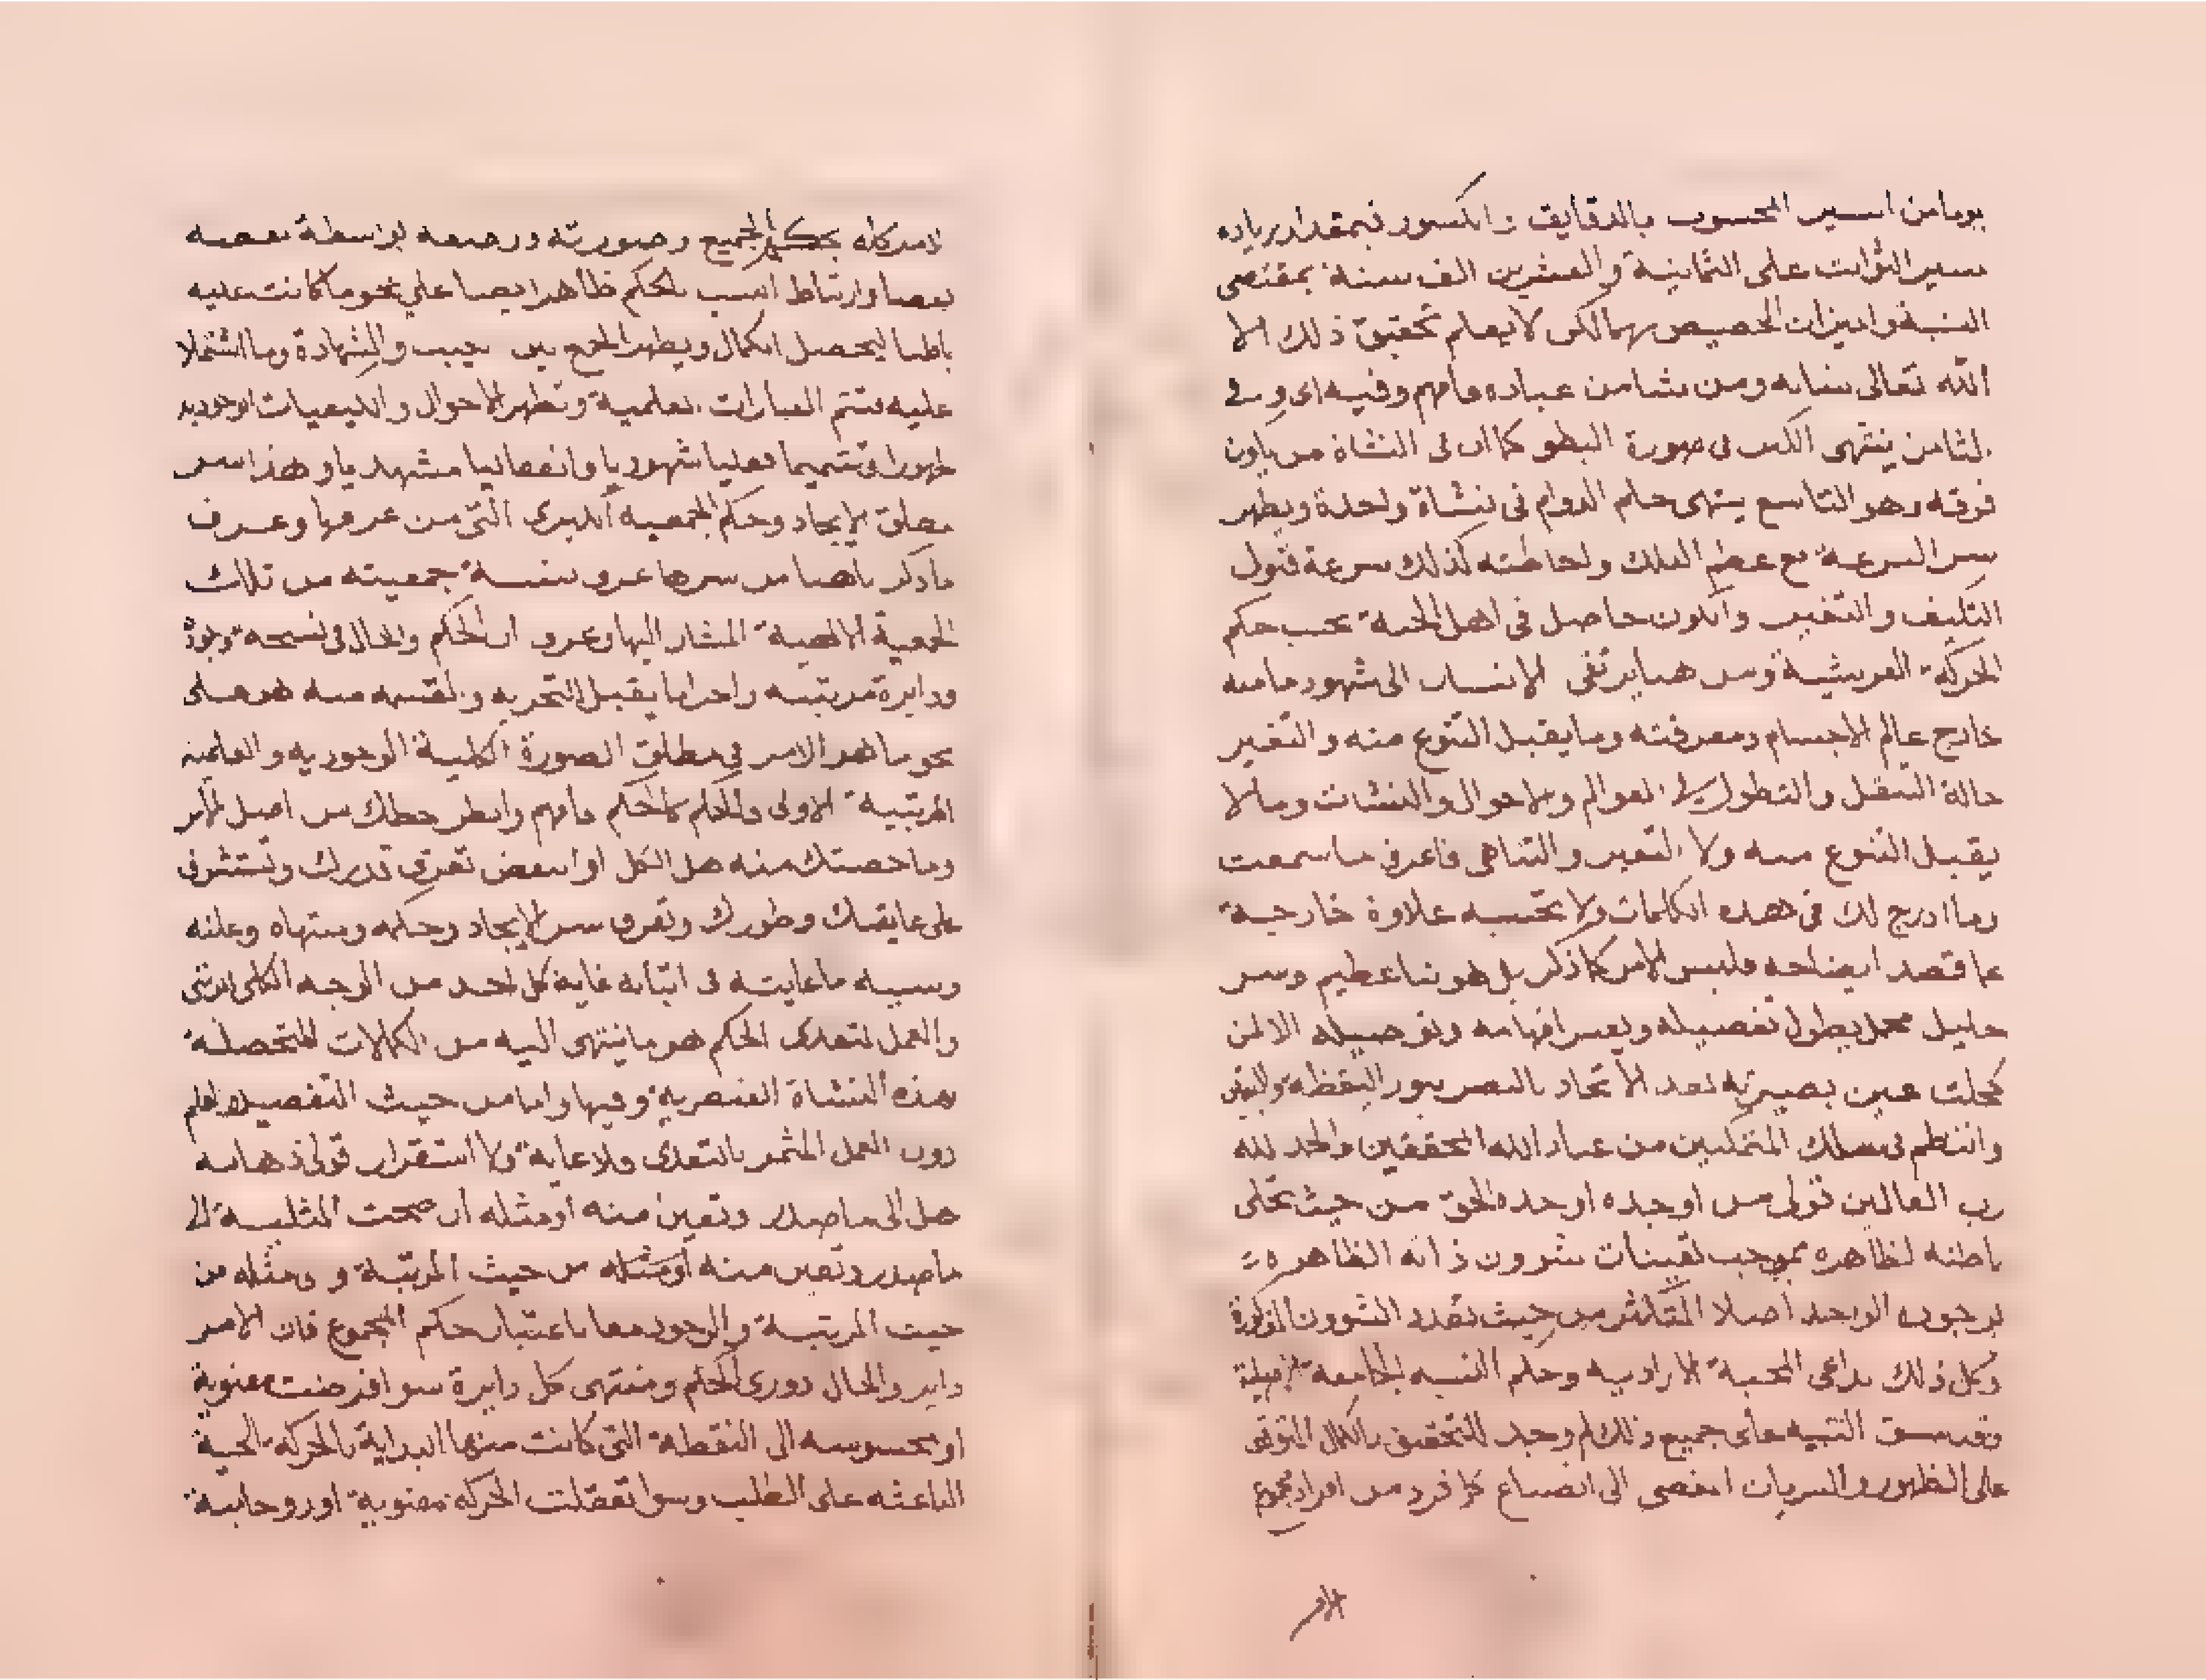 يوما من السير المحسوب بالدقايق والكسور فبمقدار زياده
سير الثوابت على الثمانية والعشرين الف سنة بمقتضى
النسبة والميزان الخصيص بهما لكن لا يعلم تحقيق ذلك الا
الله تعالى شانه ومن شا من عباده فافهم وفيه اى وفى
الثامن ينتهى الكسر فى صورة البطو كما ان فى النشاة من يكون
فوقه وهو التاسع ينتهى حكم الدوام فى نشاة واحدة ويظهر
سر السرعة مع عظم الفلك واحاطته كذلك سرعة قبول
التكيف والتغير والكون حاصل فى اهل الجنة بحسب حكم
الحركة العرشية ومن هنا يرتقى الانسان الى شهود ما منه
خارج عالم الاجسام ومعرفته وما يقبل التنوع منه والتغير
حالة التنقل والتطور فى العوالم والاحوال والنشات وما لا
يقبل التنوع منه ولا التغير والتناهى فاعرف ما سمعت
وما ادرج لك فى هذه الكلمات ولا تحسبه علاوة خارجة
عما قصد ايضاحه فليس الامر كما ذكر بل هو نبا عظيم وسر
جليل مجمل يطول تفصيله ويعسر افهامه وتوصيله الا لمن
كحلت عين بصيرته بعد الاتحاد بالبصر بنور اليقظة واليقين
وانتظم فى سلك المتمكنين من عباد الله المحققين والحمد لله
رب العالمين قولى من اوجده اوجده الحق من حيث تجلى
باطنه لظاهره بموجب تعينات شوون ذاته الظاهره
بوجوده الواحد اصلا المتكثر من حيث تعدد الشوون المذكورة
وكل ذلك بداعى المحبة الارادية وحكم النسبه الجامعة الاصلية
وقد سبق التنبيه على جميع ذلك لم وجد للتحقق بالكمال المتوقف
على الظهور والسريان المفضى الى انصباغ كل فرد من افراد مجموع
الامر
الامر كله بحكم الجميع وصورته ووصفه بواسطة بعضه
بعضا وارتباط النسب بالحكم ظاهرا ايضا على نحو ما كانت عليه
باطنا ليحصل الكمال ويظهر الجمع بين الغيب والشهادة وما اشتملا
عليه فتتم العبارات العلمية وتظهر الاحوال والكيفيات الوجودية
ظهورا تتميما فعليا شهوديا وانفعاليا مشهديا وهذا سر
مطلق الايجاد وحكم الجمعيه الكبرى التى من عرفها وعرف
ما ذكر باهنا من سرها عرف نسبة جمعيته من تلك
الجمعية الالهية المشار اليها وعرف ان الحكم والحال فى نسخة وجوده
ودايرة مرتبته واحد ما يقبل التجزيه والقسمه منه هو على
نحو ما هو الامر فى مطلق الصورة الكلية الوجوديه والعلمية
المرتبية الاولى والحكم كالحكم فافهم وانظر حظك من اصل الامر
وما حصتك منه هل الكل او البعض تعرف قدرك وتستشرف
على غايتك وطورك وتعرف سر الايجاد وحكمه ومنتهاه وعلته
وسببه ما غايته فى اتيانه غاية كل احد من الوجه الكلى المرتبى
والعمل المتعدى الحكم هو ما ينتهى اليه من الكمالات المتحصلة
بهذه النشاة العنصرية وفيها واما من حيث التفصيل والعلم
دون العمل المثمر بالتعدى ولا غاية ولا استقرار قولى ذهابه
هل الى ما صدر وتعين منه او مثله ان صحت المثلية الى
ما صدر وتعين منه او مثله من حيث المرتبة او مثله من
حيث المرتبة والوجود معا باعتبار حكم المجموع فان الامر
داير والحال دورى الحكم ومنتهى كل دايرة سوا فرضت معنوية
او محسوسه الى النقطة التى كانت منها البداية بالحركة الحبية
الباعثه على الطلب وسوا تعقلت الحركة معنوية او روحانية